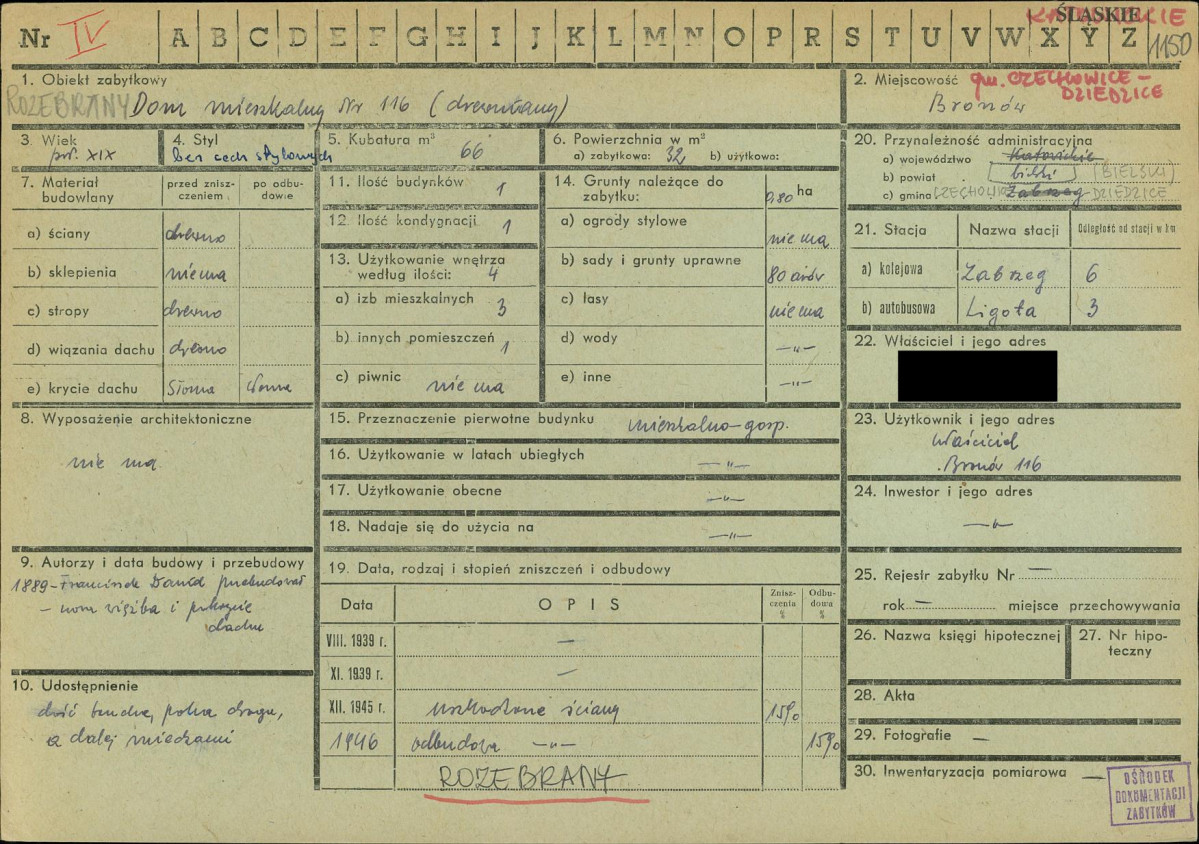 Nr IV A B C D E F G H I J K L M N O P R S T U V W X Y Z
ŚLĄSKIE
1150
1. Obiekt zabytkowy
ROZEBRANY Dom mieszkalny Nr 116 (drewniany)
2. Miejscowość gm. CZECHOWICE-
DZIEDZICE
Bronów
3. Wiek
poł. XIX
4. Styl
bez cech stylowych
5. Kubatura m³
66
6. Powierzchnia w m²
a) zabytkowa: 32 b) użytkowa:
20. Przynależność administracyjna
a) województwo Katowickie
b) powiat bielski (BIELSKI)
c) gmina CZECHOWICE Zabrzeg DZIEDZICE
7. Materiał budowlany
przed znisz-
czeniem
po odbu-
dowie
a) ściany drewno
b) sklepienia nie ma
c) stropy drewno
d) wiązania dachu drewno
e) krycie dachu słoma słoma
11. Ilość budynków 1
12. Ilość kondygnacji 1
13. Użytkowanie wnętrza
według ilości: 4
a) izb mieszkalnych 3
b) innych pomieszczeń 1
c) piwnic nie ma
14. Grunty należące do
zabytku: 0,80 ha
a) ogrody stylowe nie ma
b) sady i grunty uprawne 80 arów
c) łasy nie ma
d) wody —„—
e) inne —„—
21. Stacja Nazwa stacji Odległość od stacji w km
a) kolejowa Zabrzeg 6
b) autobusowa Ligota 3
22. Właściciel i jego adres
8. Wyposażenie architektoniczne
nie ma
15. Przeznaczenie pierwotne budynku mieszkalno-gosp.
16. Użytkowanie w latach ubiegłych —„—
17. Użytkowanie obecne —„—
18. Nadaje się do użycia na —„—
23. Użytkownik i jego adres
właściciel
Bronów 116
24. Inwestor i jego adres
—„—
9. Autorzy i data budowy i przebudowy
1889 - Franciszek Dawid przebudował
- nom więźba i pokrycie
dachu
10. Udostępnienie
dość trudne, polna droga,
a dalej miedzami
19. Data, rodzaj i stopień zniszczeń i odbudowy
Data OPIS Znisz-
czenia
% Odbu-
dowa
%
VIII. 1939 r. —
XI. 1939 r. —
XII. 1945 r. uszkodzone ściany 15%
1946 odbudowa —„— 15%
ROZEBRANY
25. Rejestr zabytku Nr —
rok — miejsce przechowywania
26. Nazwa księgi hipotecznej
27. Nr hipo-
teczny
28. Akta
29. Fotografie —
30. Inwentaryzacja pomiarowa —
OŚRODEK
DOKUMENTACJI
ZABYTKÓW